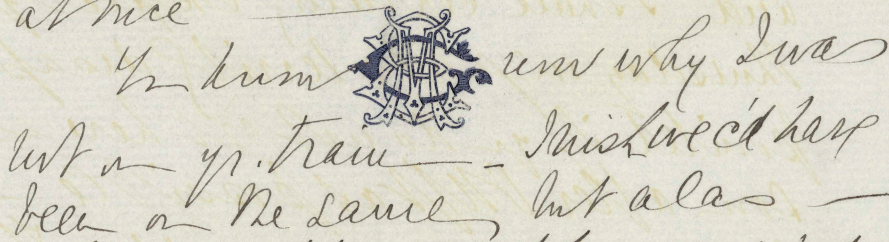 at once
Yr know now why I was
not on yr. train – I wish we c'd have
been on the same, but alas –